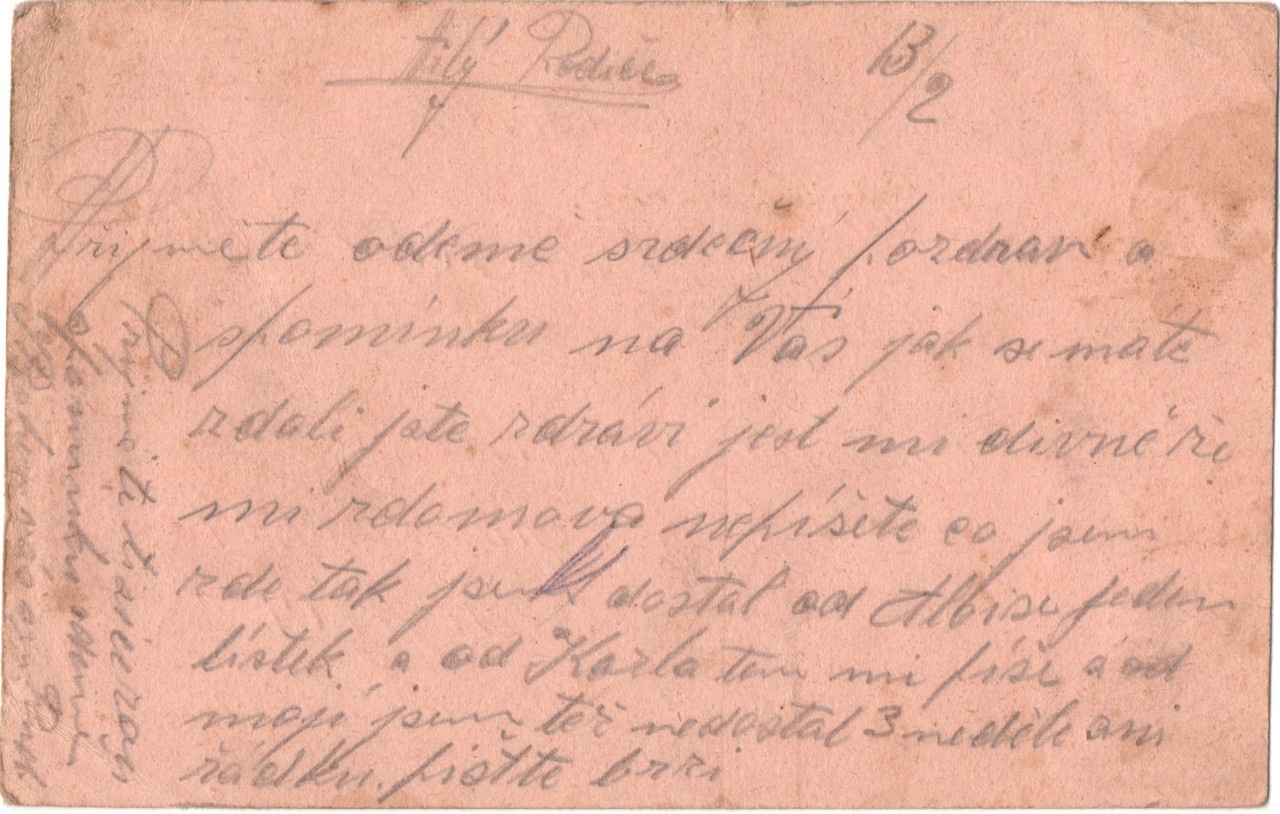 Milý Rodiče 13/2
Přijměte odemě srdečný pozdrav a
spomínku na Vás jak se máte
zdali jste zdrávi jest mi divné že
mi zdomova nepíšete co jsem
zde tak jsem dostal od Aloise jeden
lístek a od Karla ten mi píše a od
moji jsem též nedostal 3 neděle ani
řádku. pište brzi
Přijměte